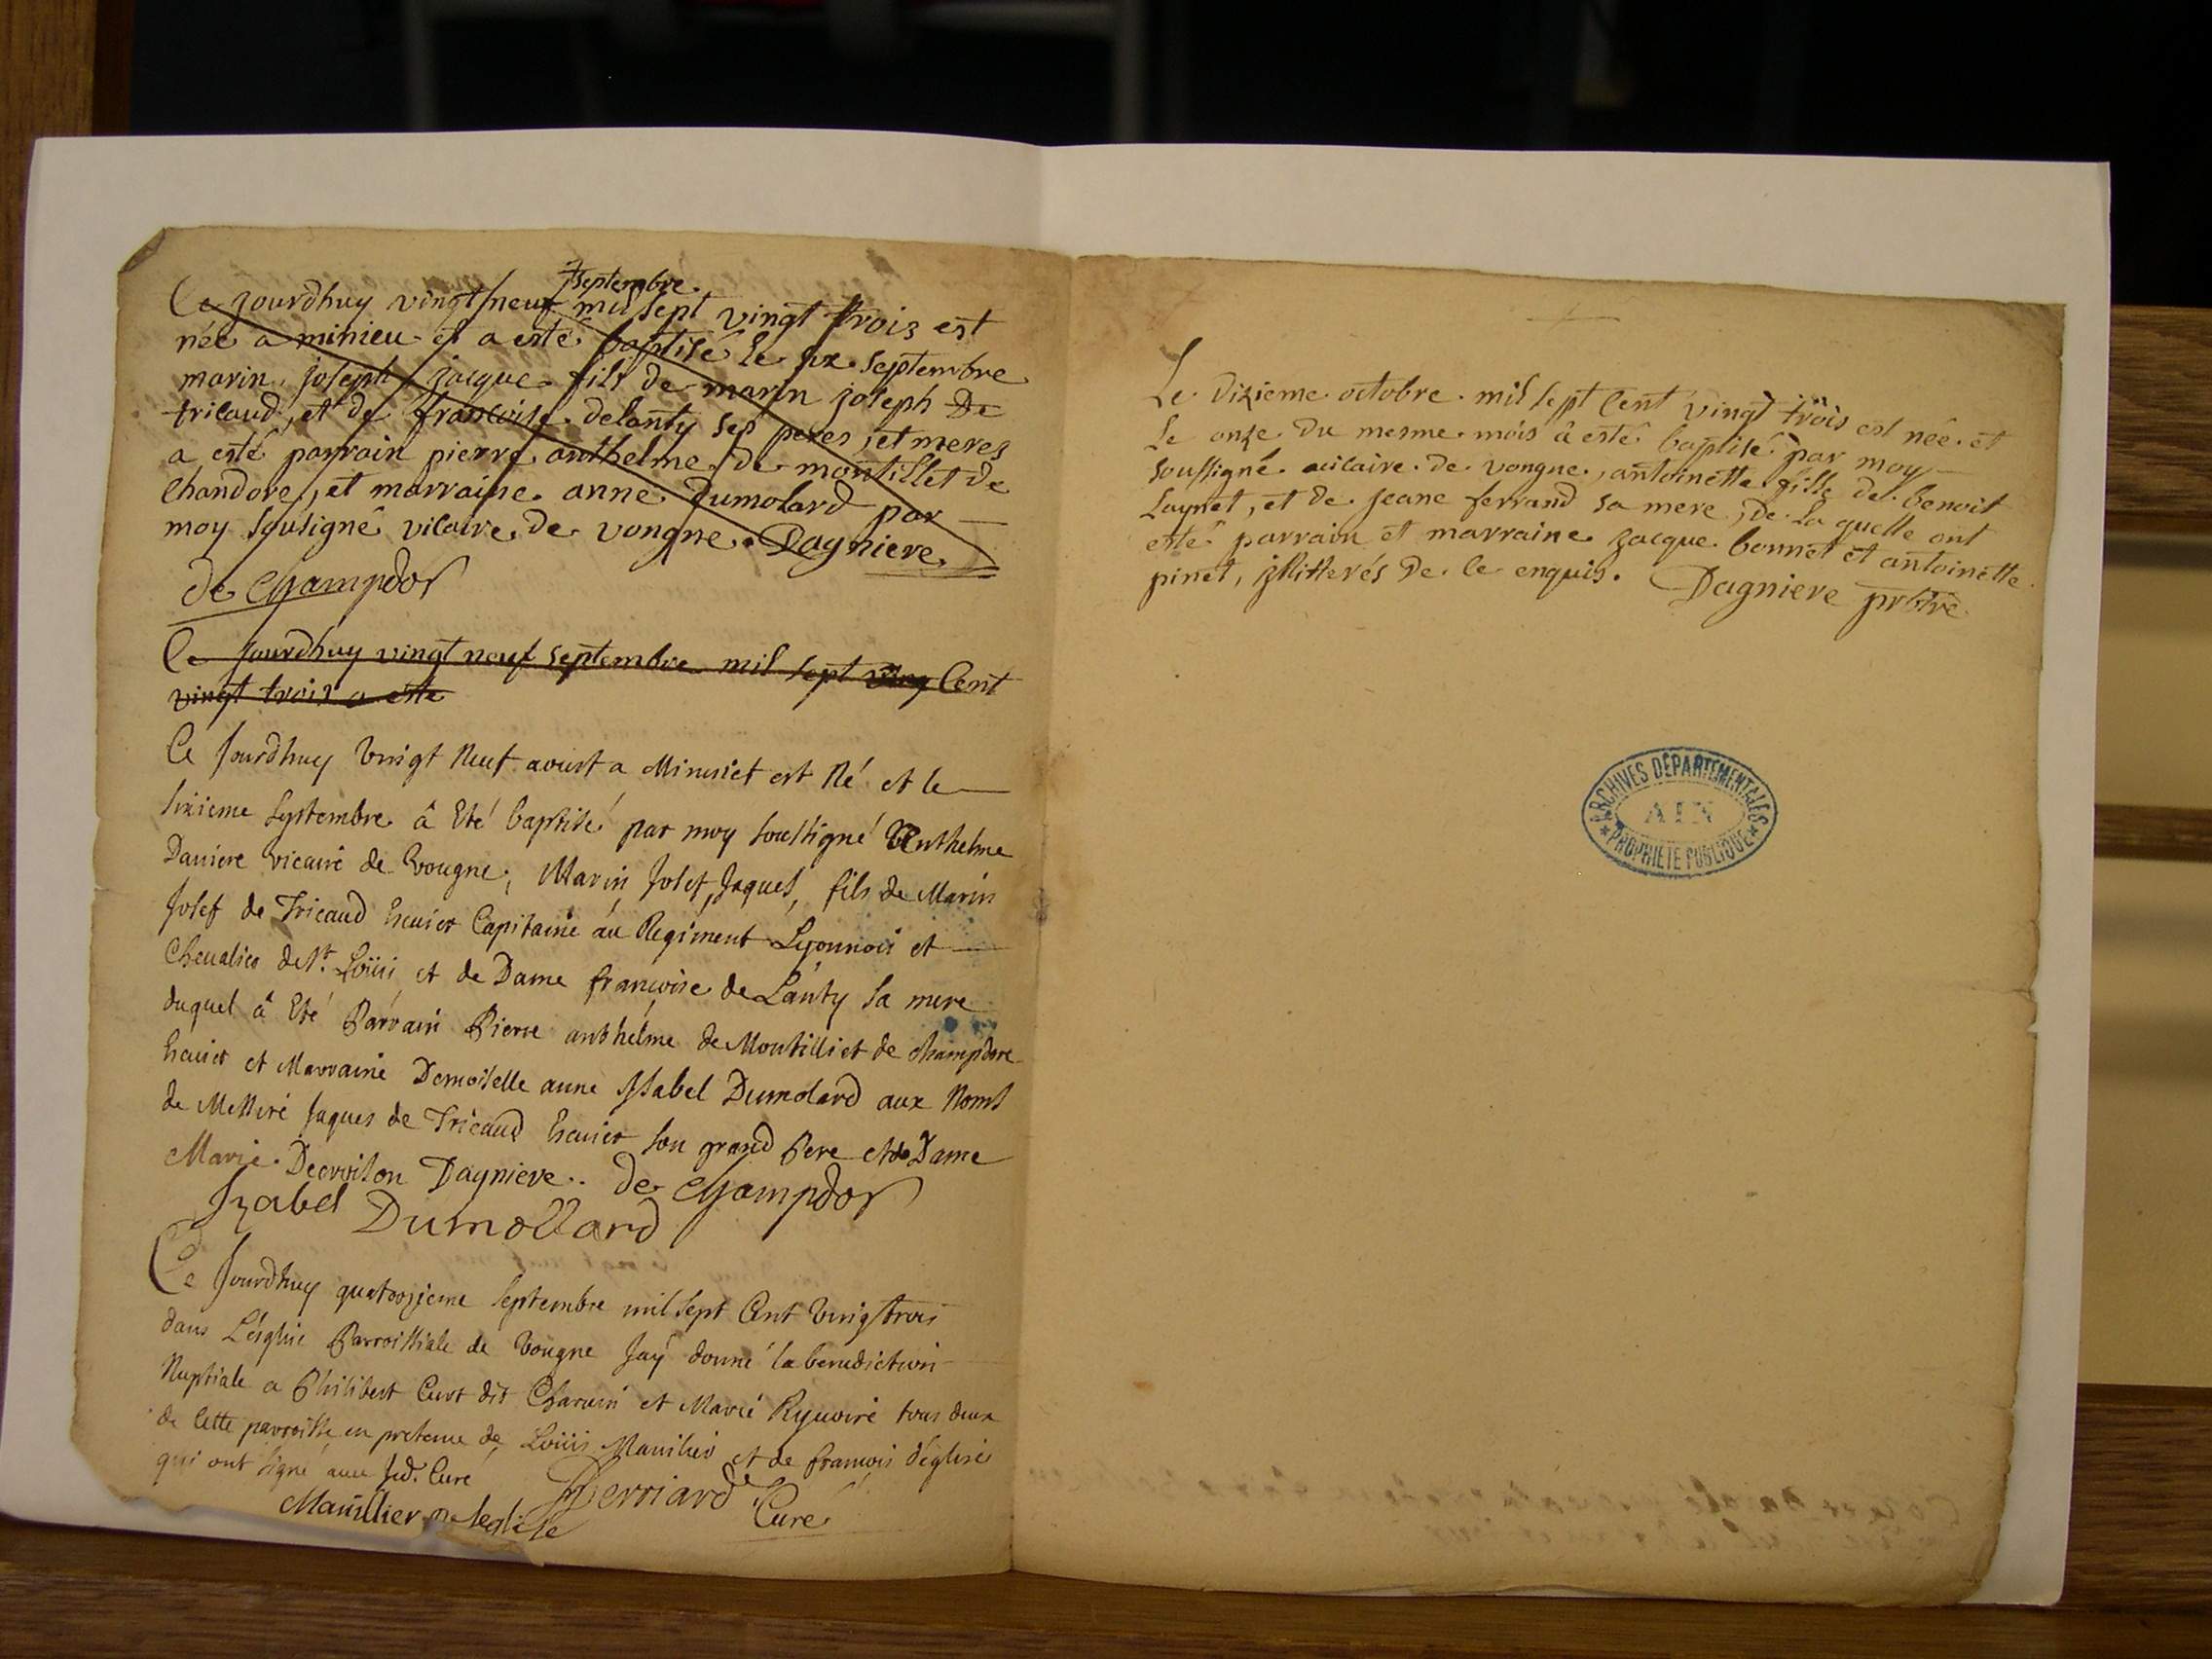 septembre.
Ce jourdhuy vingt neuf mil sept vingt trois est
née a minieu et a esté baptisé le six septembre
marin, joseph, jacque fils de marin joseph De
tricaud, et de francoise delanty ses peres, et meres
a esté parrain pierre anthelme de montillet de
Chandore, et marraine anne Dumolard par
moy sousigné vicaire de vongne. Dagniere
de Champdor
Ce jourdhuy vingt neuf septembre mil sept ving Cent
vingt trois a esté
Ce Jourdhuy Vingt Neuf aoust a Minuict est Né et le
Sixieme Septembre â Eté baptisé par moy soussigné Anthelme
Daniere vicaire de Vougne, Marin, Josef, Jaques, fils de Marin
Josef de Tricaud Ecuier Capitaine au Regiment Lyonnois et
Chevalier de St. Loüis et de Dame francoise de Lanty sa mere
duquel â Eté Parrain Pierre anthelme de Montilliet de champdore
Ecuier et Marraine Demoiselle anne Isabel Dumolard aux Noms
de Messire Jaques de Tricaud Ecuier son grand Pere et de Dame
Marie Decroison Dagniere.. de Champdor
Izabel Dumollard
Ce Jourdhuy quatorzieme Septembre mil sept Cent Vingtrois
dans L'eglise Parroissiale de Vougne Jay donné la benediction
Nuptiale a Philibert Curt dit Charvin et Marie tous deux
de Cette parroisse en presence de Loüis Mauilier et de francois d'eglise
qui ont signé avec Curé
Mauillier De leglise Perriard Curé
Le dizieme octobre mil sept Cent vingt trois est née et
le onze du mesme mois â esté baptisé par moy
soussigné vicaire de vongne, antoinette fille de benoit
Laynet, et de jeane ferrand sa mere, de la quelle ont
esté parrain et marraine jacque bonnet et antoinette
pinet, illitterés de ce enquis. Dagniere prbtre
ARCHIVES DÉPARTEMENTALES
AIN
PROPRIÉTÉ PUBLIQUE